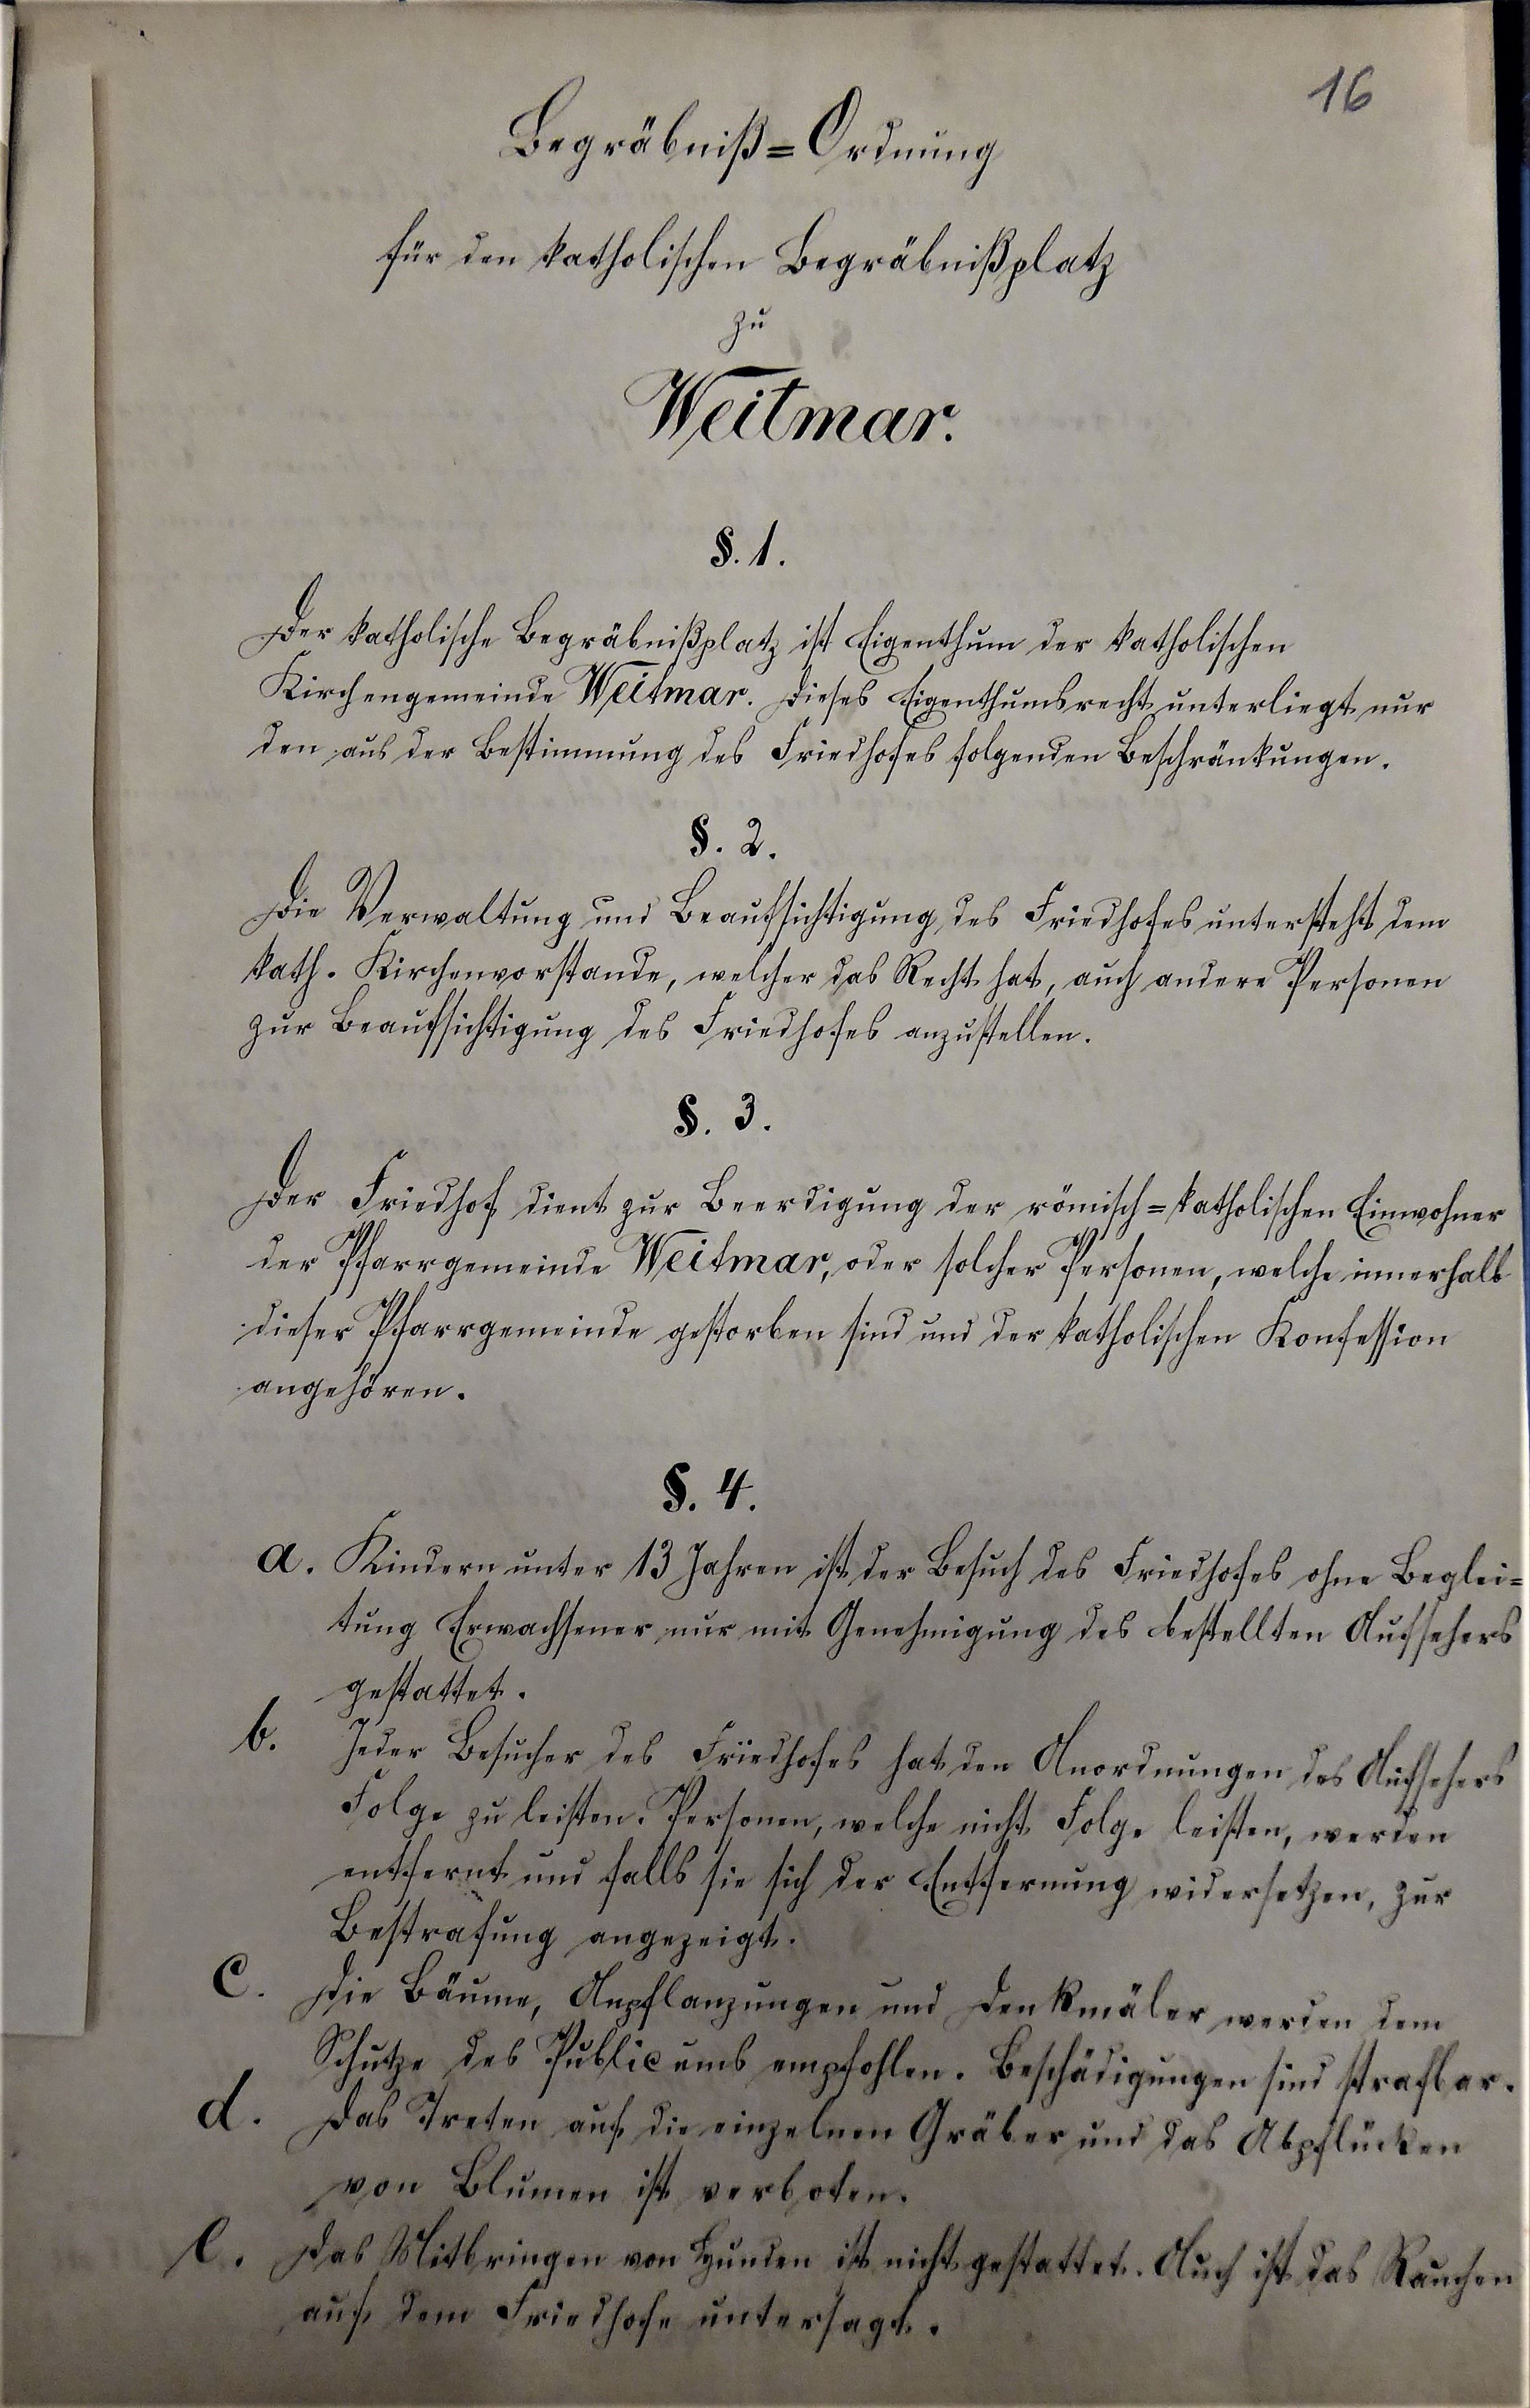 16
Begräbniß=Ordnung
für den katholischen Begräbnißplatz
zu
Weitmar.
§. 1.
Der katholische Begräbnißplatz ist Eigenthum der katholischen
Kirchengemeinde Weitmar. Dieses Eigenthumsrecht unterliegt nur
den aus der Bestimmung des Friedhofes folgenden Beschränkungen.
§. 2.
Die Verwaltung und Beaufsichtigung des Friedhofes untersteht dem
kath. Kirchenvorstande, welcher das Recht hat, auch andere Personen
zur Beaufsichtigung des Friedhofes anzustellen.
§. 3.
Der Friedhof dient zur Beerdigung der römisch=katholischen Einwohner
der Pfarrgemeinde Weitmar, oder solcher Personen, welche innerhalb
dieser Pfarrgemeinde gestorben sind und der katholischen Konfession
angehören.
§. 4.
a. Kindern unter 13 Jahren ist der Besuch des Friedhofes ohne Beglei=
tung Erwachsener nur mit Genehmigung des bestellten Aufsehers
gestattet.
b. Jeder Besucher des Friedhofes hat den Anordnungen des Aufsehers
Folge zu leisten. Personen, welche nicht Folge leisten, werden
entfernt und falls sie sich der Entfernung widersetzen, zur
Bestrafung angezeigt.
c. Die Bäume, Anpflanzungen und Denkmäler werden dem
Schutze des Publicums empfohlen. Beschädigungen sind strafbar.
d. Das Treten auf die einzelnen Gräber und das Abpflücken
von Blumen ist verboten.
e. Das Mitbringen von Hunden ist nicht gestattet. Auch ist das Rauchen
auf dem Friedhofe untersagt.